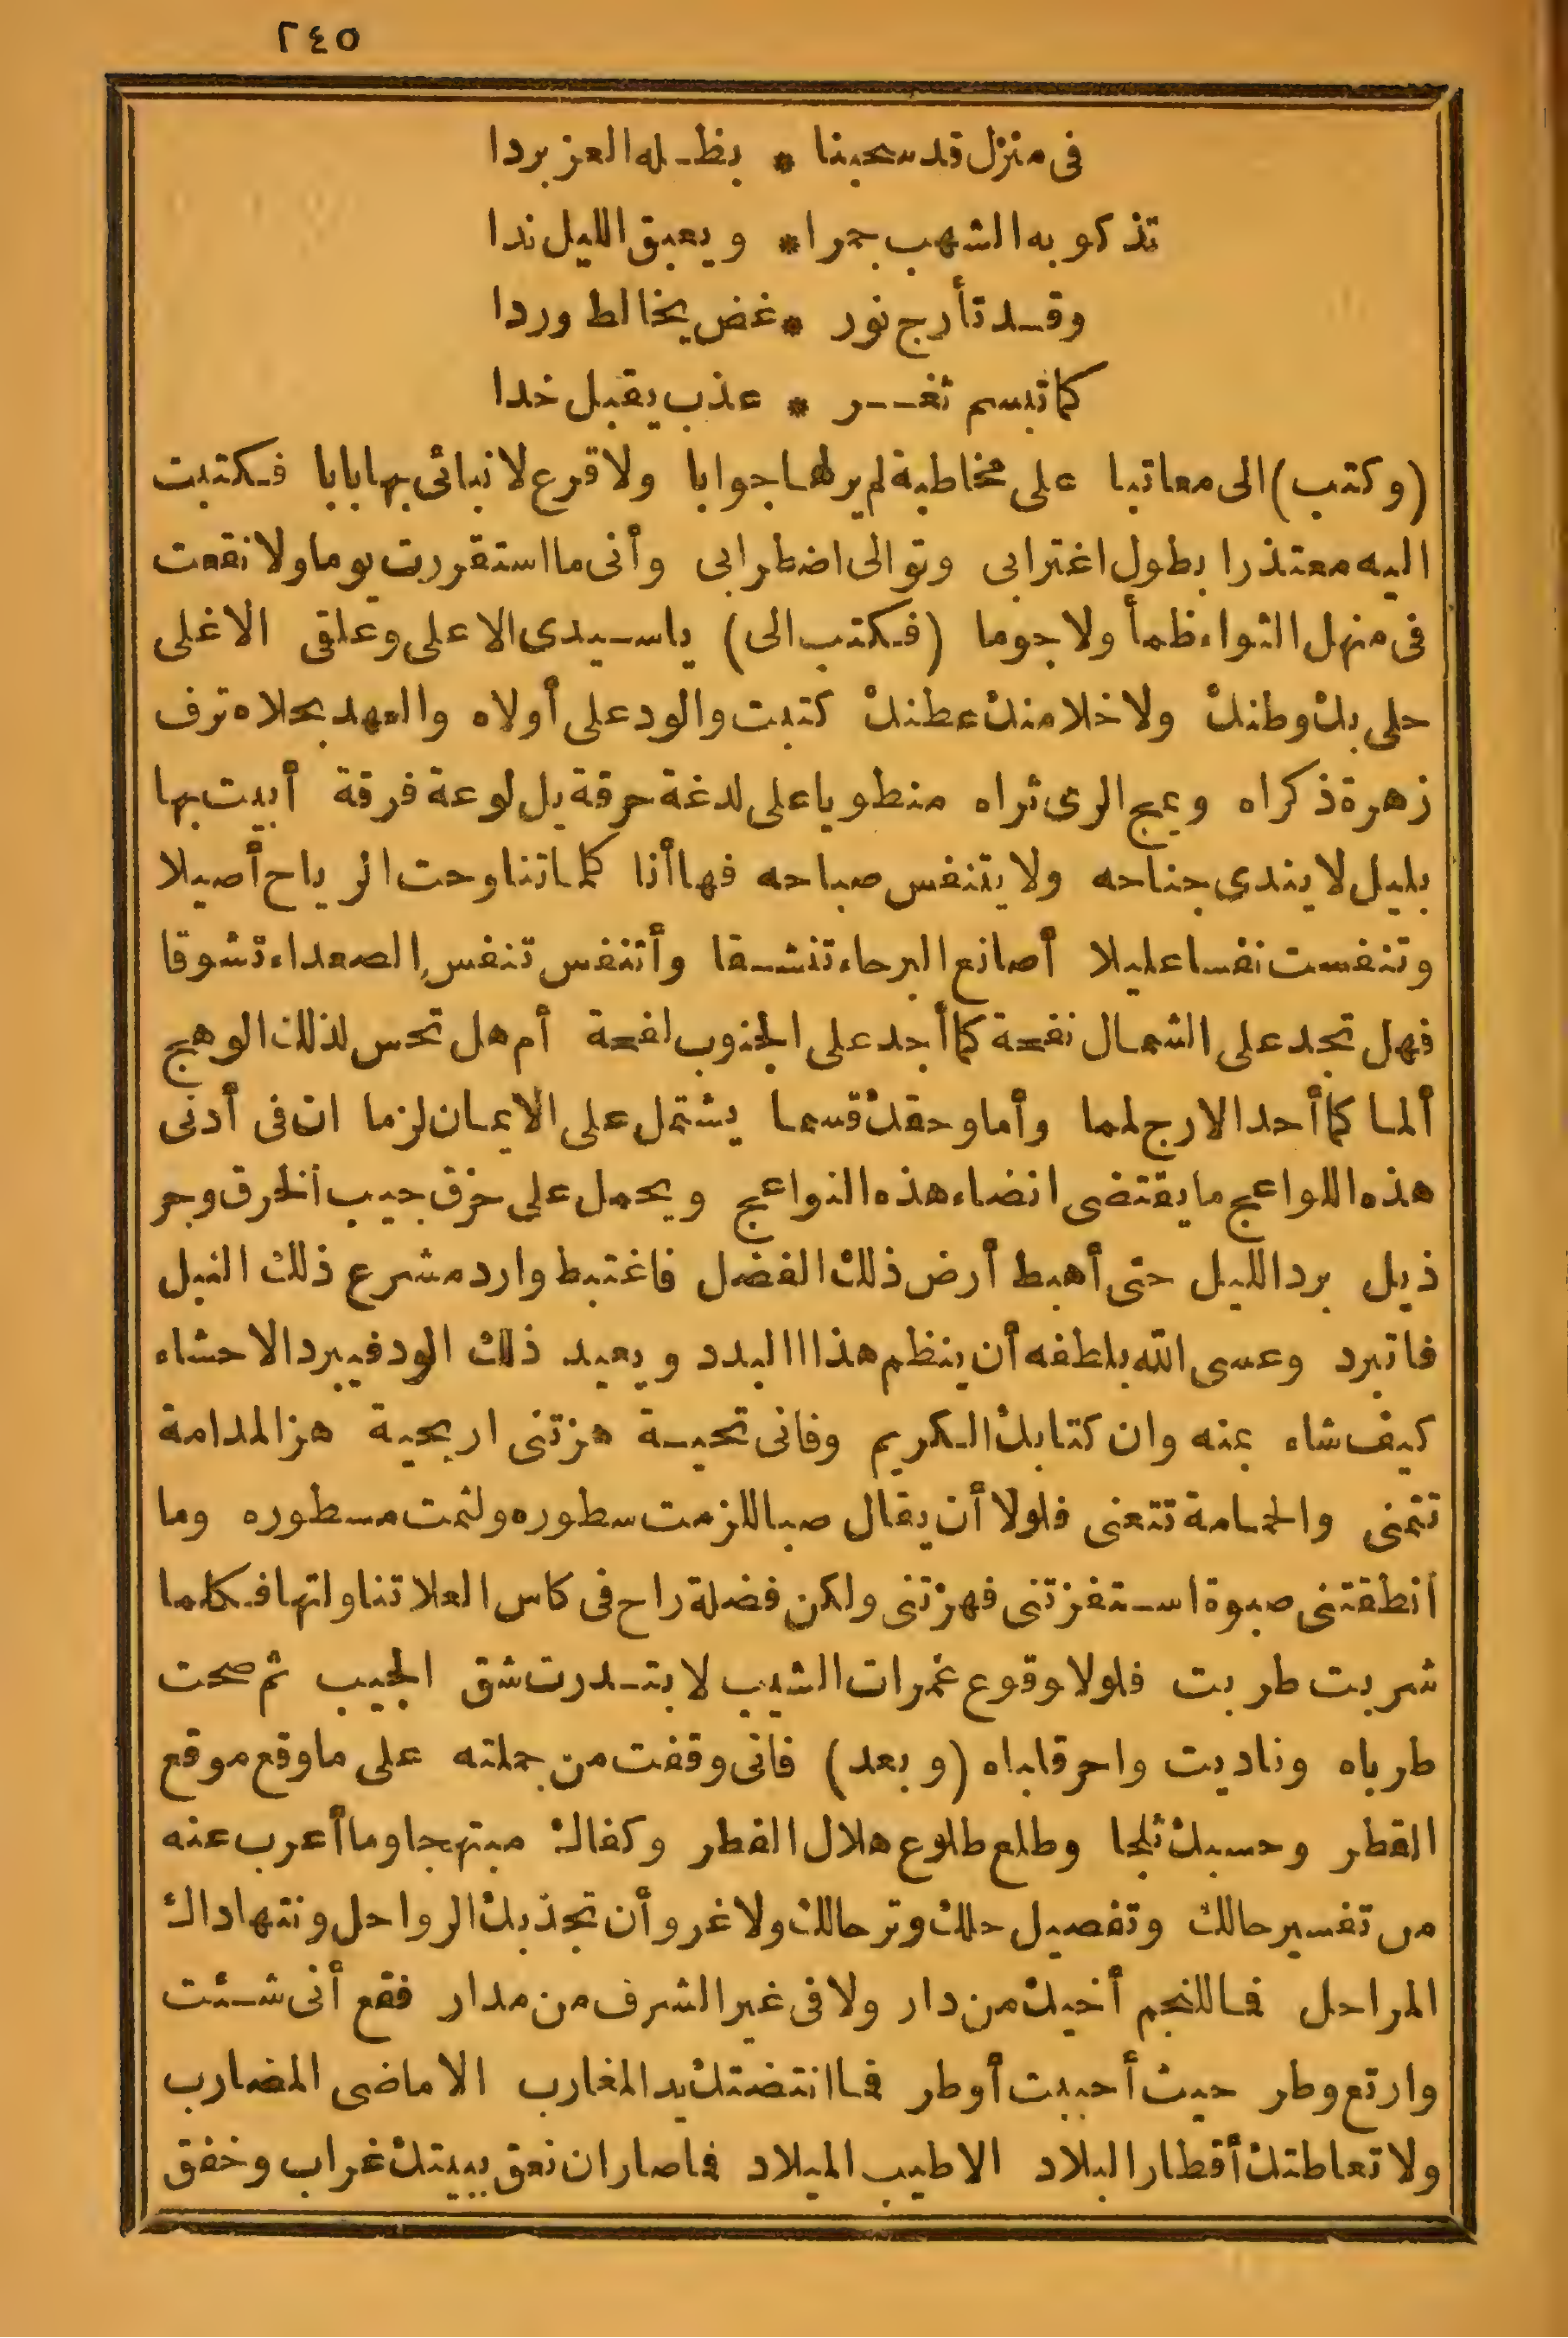 ٢٤٥
فى منزل قد سحبنا * بظله العز بردا
تذكو به الشهب جمرا * ويعبق الليل ندا
وقد تأرج نور * غض يخالط وردا
كما تبسم ثغر * عذب يقبل خدا
(وكتب) الى معاتبا على مخاطبة لم ير لها جوابا ولا قرع لانبائى بها بابا فكتبت
اليه معتذرا بطول اغترابى وتوالى اضطرابى وأنى ما استقررت يوما ولا نقعت
فى منهل الثواء ظمأ ولا حوما (فكتب الى) ياسيدى الاعلى وعلقى الاغلى
حلى بك وطنك ولا خلا منك عطنك كتبت والود على أولاه والعهد بحلاه ترف
زهرة ذكراه ويمج الرى ثراه منطويا على لدغة حرقة بل لوعة فرقة أبيت بها
بليل لا يندى جناحه ولا يتنفس صباحه فها أنا كلما تناوحت الرياح أصيلا
وتنفست نفسا عليلا أصانع البرحاء تنشقا وأتنفس تنفس الصعداء تشوقا
فهل تجد على الشمال نفحة كما أجد على الجنوب لفحة أم هل تحس لذلك الوهج
ألما كما أجد الارج لمما وأما وحقك قسما يشتمل على الايمان لزما ان فى أدنى
هذه اللواعج ما يقتضى انضاء هذه النواعج ويحمل على خرق جيب الخرق وجر
ذيل برد الليل حتى أهبط أرض ذلك الفضل فاغتبط وارد مشرع ذلك النبل
فاتبرد وعسى الله بلطفه أن ينظم هذا البدد ويعيد ذلك الود فيبرد الاحشاء
كيف شاء بمنه وان كتابك الكريم وفانى تحية هزتنى اريحية هز المدامة
تتمنى والحمامة تتغنى فلولا أن يقال صبا للزمت سطوره ولثمت مسطوره وما
أنطقتنى صبوة استفزتنى فهزتنى ولكن فضلة راح فى كاس العلا تناولتها فكلما
شربت طربت فلولا وقوع غمرات الشيب لابتدرت شق الجيب ثم صحت
طرباه وناديت واحر قلباه (وبعد) فانى وقفت من جملته على ما وقع موقع
القطر وحسبك ثلجا وطلع طلوع هلال الفطر وكفاك مبتهجا وما أعرب عنه
من تفسير حالك وتفصيل حلك وترحالك ولا غرو أن تجذبك الرواحل وتتهاداك
المراحل فما للنجم أخيك من دار ولا فى غير الشرف من مدار فقع أنى شئت
وارتع وطر حيث أحببت أوطر فما انتضتك يد المغارب الا ماضى المضارب
ولا تعاطتك أقطار البلاد الا طيب الميلاد فما صار ان نعق ببيتك غراب وخفق